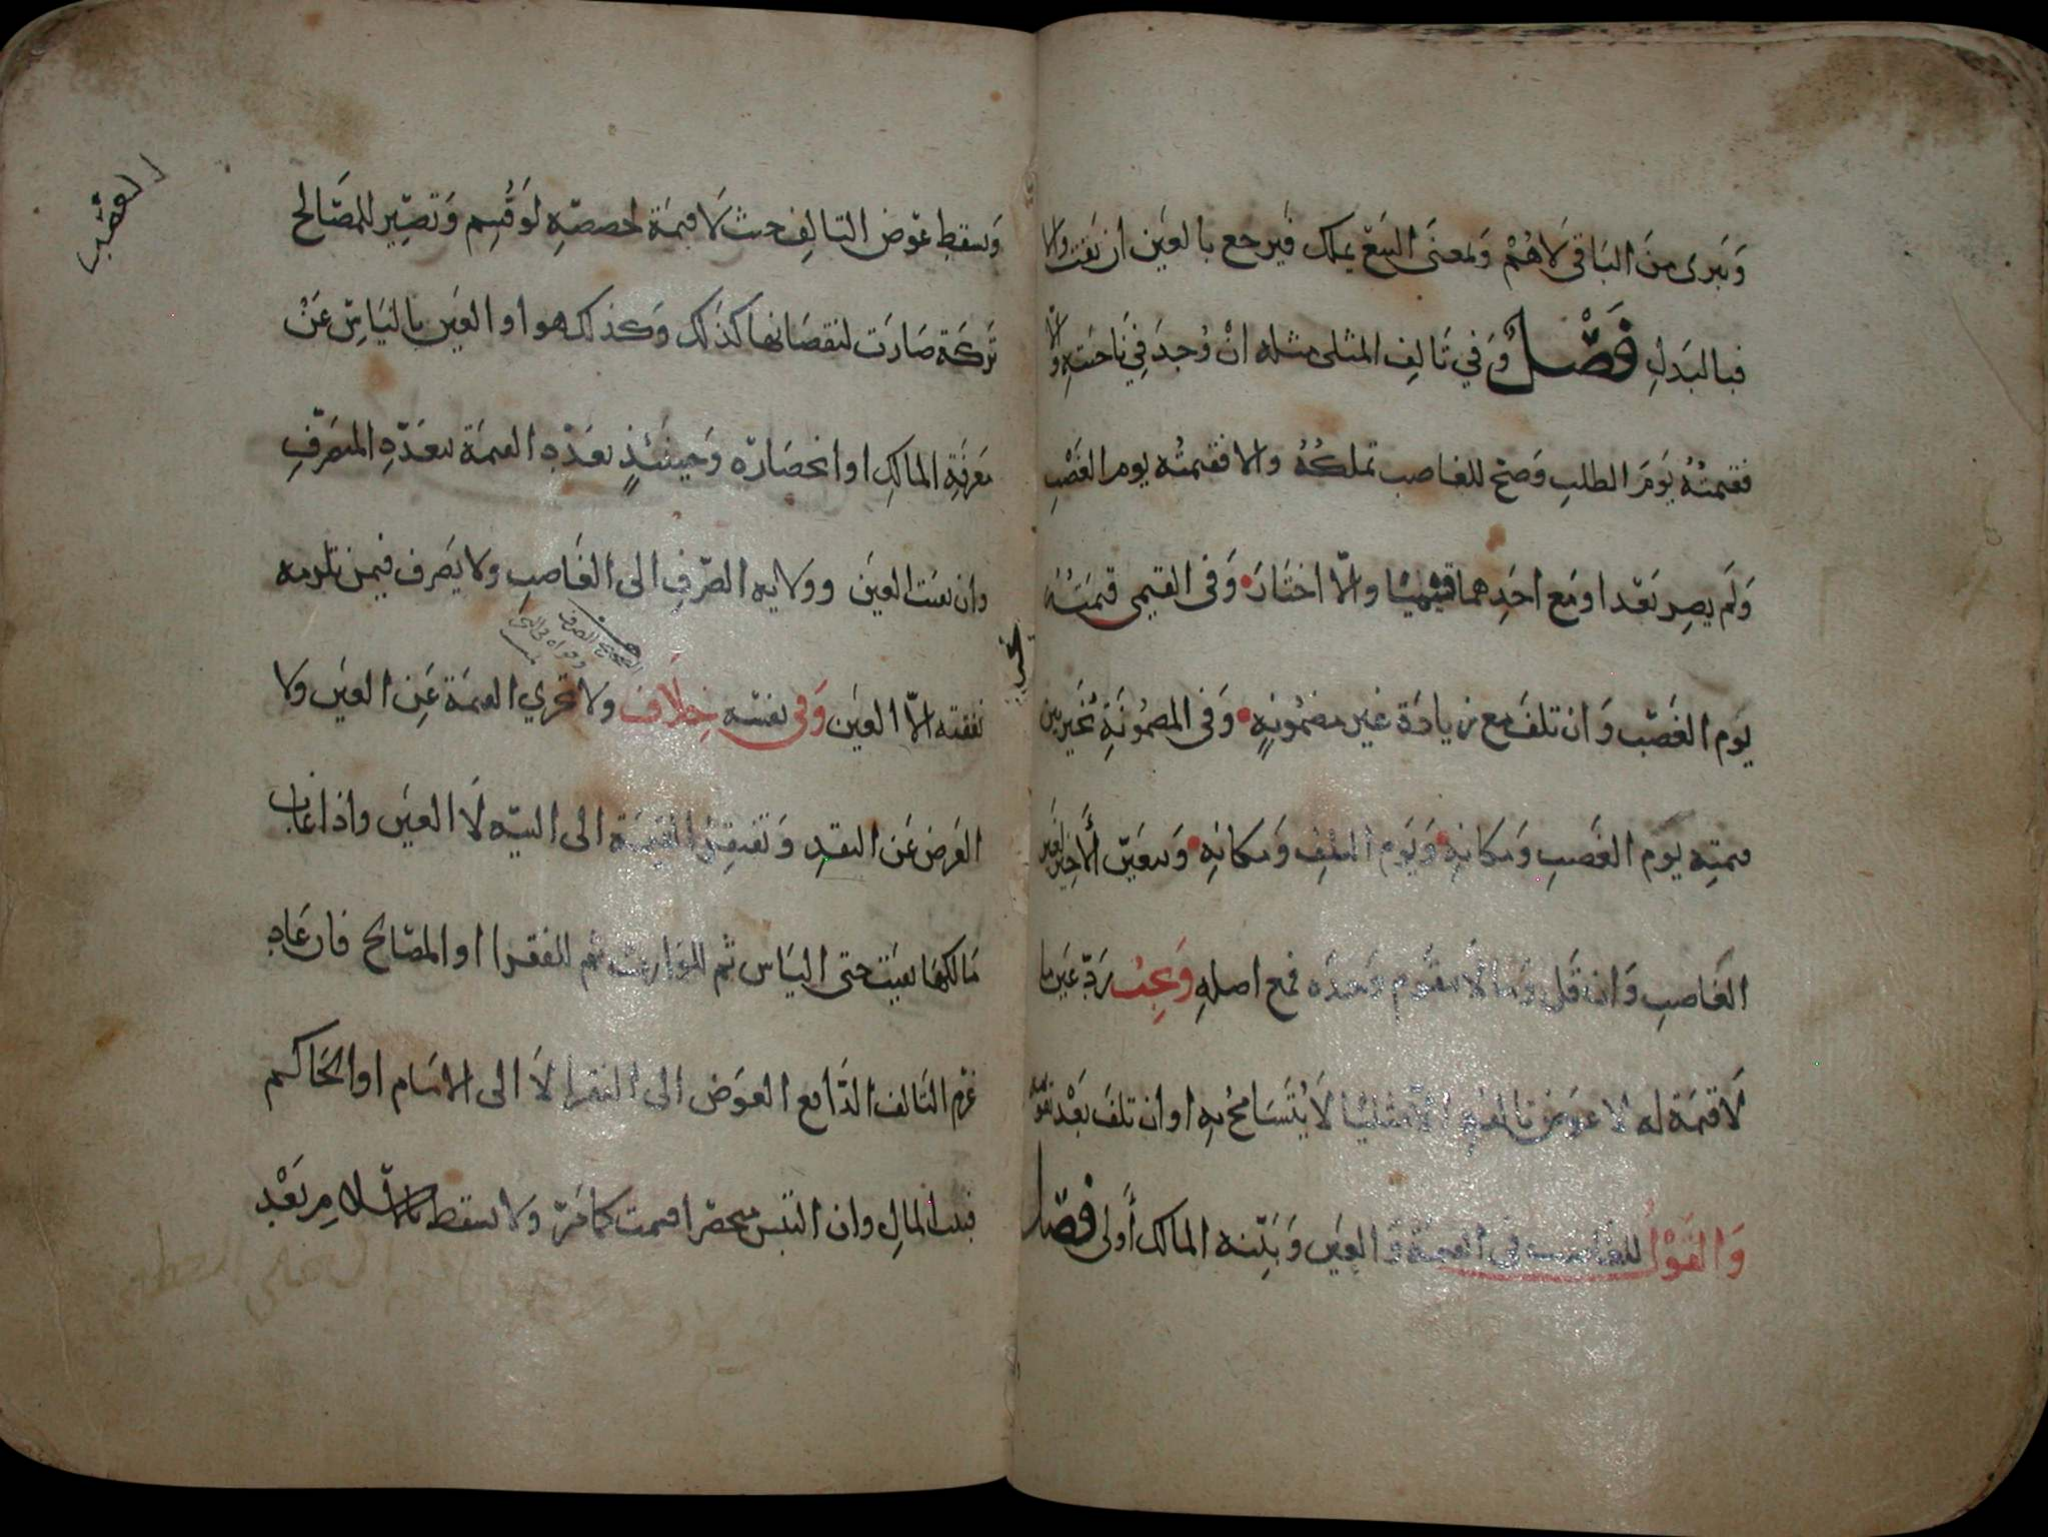 وَيَبرى مِنَ البَاقي لَا هُمْ وَبمعنَى البَيْع يملك فيَرجع بالعَين ان بَقيَت والا
فبالبَدلِ فَصْل وَفي تَالِفِ المثلي مثله انْ وُجدَ في نَاحيَتِهِ وَالّا
فقيمتُهُ يَومَ الطلبِ وَصَح للغاصب تملكُهُ والا فقيمتُه يوم الغَصْبِ
وَلَم يصِر بَعْد او مَع احَدِهما قيميًا والّا اختَارَ وَفي القيمي قيمَتُهُ
يَوم الغَصْب وَان تلفَ مَع زيادَة غير مضمُونةٍ وَفي المضمُونَةِ يُخَيّر بين
قيمتِه يَوم الغَصبِ وَمكانِهِ وَيَوم التلفِ وَمكانِهِ وَيتعَيّن الأَخِير لغَير
الغَاصبِ وَان قَل وَما لَا يتقوّم وَحدَه فمع اصلهِ وَيجبُ رَدّ عَين ما
لَا قيمَة له لا عوَض تالفهِ الا مثليًا لَا يُتَسَامحُ بِهِ او ان تلفَ بَعْد تقوّمه
وَالقَوْلُ للغَاصب في القيمَة وَالعَين وَبَيّنة المالك أَولى فصْل
وَيسقط عوَض التالِف حيث لَا قيمَة لحصصِهِ لَو قُسِم وَتصِير للمصَالح
تَركَة صَارَت لنقصَانها كذَلك وَكذلك هو او العَين باليَاسِ عَنْ
مَعرفَةِ المالكِ او انحصَارِه وَحِينَئِذٍ تعَدّد القيمَة بتعَدّدِ المتصَرّفِ
وان بقيت العَين وولايه الصّرفِ الى الغَاصبِ ولا يَصرف فيمن تلزمه
نفقته الّا العَين وَفي نفسه خِلَاف ولا تجزي القيمَة عَن العَين ولا
العَرض عَن النقدِ وَتفتقر القيمَة الى النيّه لَا العَين واذا غاب
مَالكها بقيَت حتى اليَاس ثم للوَارث ثم للفقرا او المصَالح فان عَاد
غرم التَالف الدَّافع العوَض الى الفقرا لَا الى الامَام او الحَاكم
فبيت المَالِ وان التبَس منحصرًا قسمت كما مَرّ وَلا يسقط بالاسلام بَعْد
الغصب